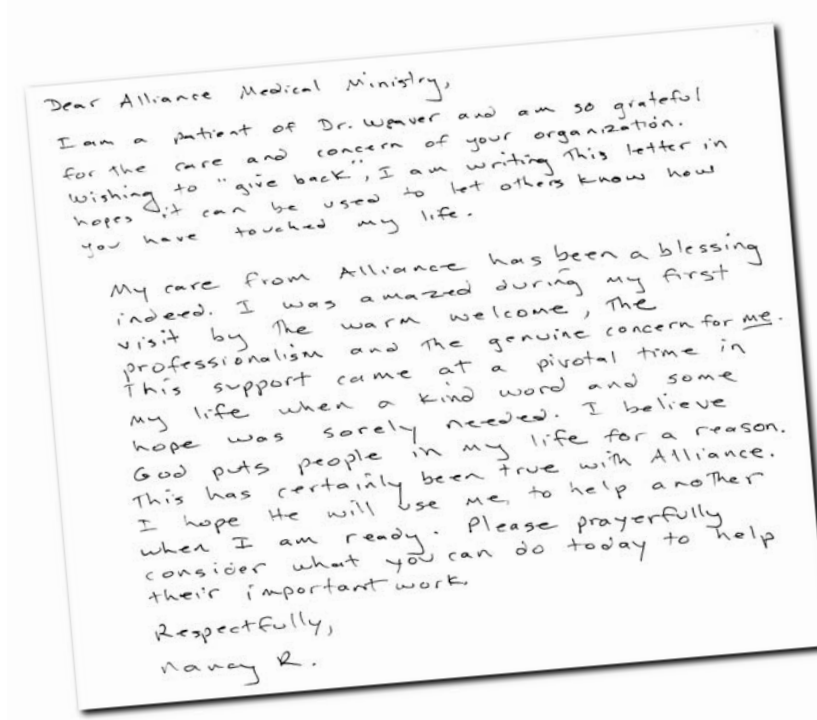 Dear Alliance Medical Ministry,
I am a patient of Dr. Weaver and am so grateful
for the care and concern of your organization.
Wishing to "give back", I am writing this letter in
hopes it can be used to let others know how
you have touched my life.
My care from Alliance has been a blessing
indeed. I was amazed during my first
visit by the warm welcome, the
professionalism and the genuine concern for me.
This support came at a pivotal time in
my life when a kind word and some
hope was sorely needed. I believe
God puts people in my life for a reason.
This has certainly been true with Alliance.
I hope He will use me, to help another
when I am ready. Please prayerfully
consider what you can do today to help
their important work.
Respectfully,
Nancy R.